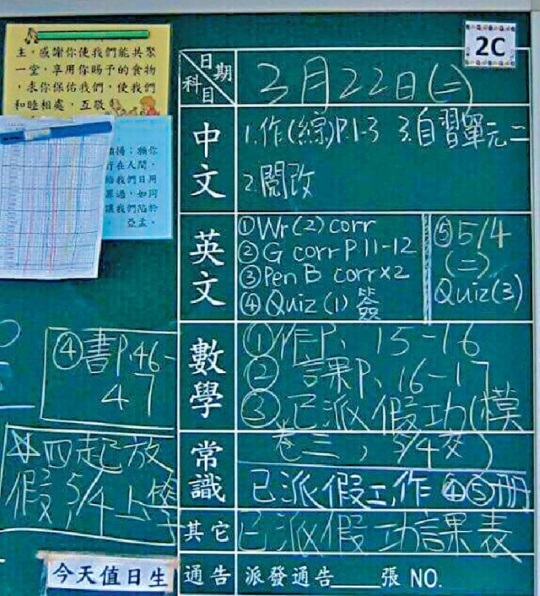 主，感謝你使我們能共聚
一堂，享用你賜予的食物
，求你保佑我們，使我們
和睦相處，互敬
2C
日期
科目
3月22日(二)
中文
1.作(綜)P.1-3 3.自習單元二
2.閱改
英文
①Wr(2) corr
②G corr P11-12
③Pen B corr×2
④Quiz(1) 簽
⑤5/4
(二)
Quiz(3)
數學
①作P、15-16
②課P、16-17
③已派假功(模
卷三，5/4交)
④書P.46-
47
常識
已派假工作④⑤冊
四起放
假，5/4上學
其它
已派假功課表
通告
派發通告____張 NO.
今天值日生
願你
行在人間，
給我們日用
罪過，如同
讓我們陷於
亞孟。